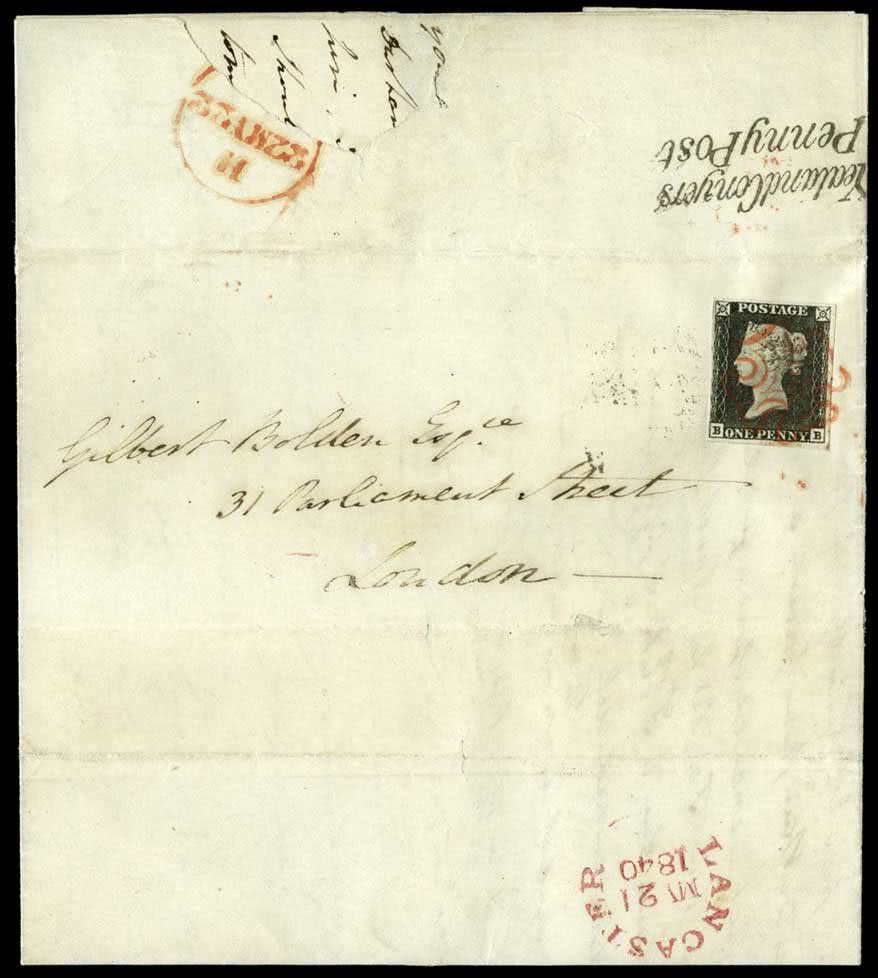 Yealand Conyers
Penny Post
H
22 MY 22
POSTAGE
B ONE PENNY B
Gilbert Bolden Esqre
31 Parliament Street
London
LANCASTER
MY 21
1840